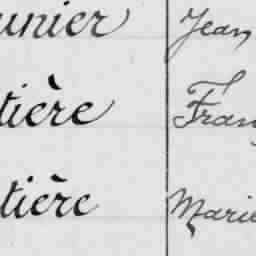 unier Jean
tière Fran
tière Marie